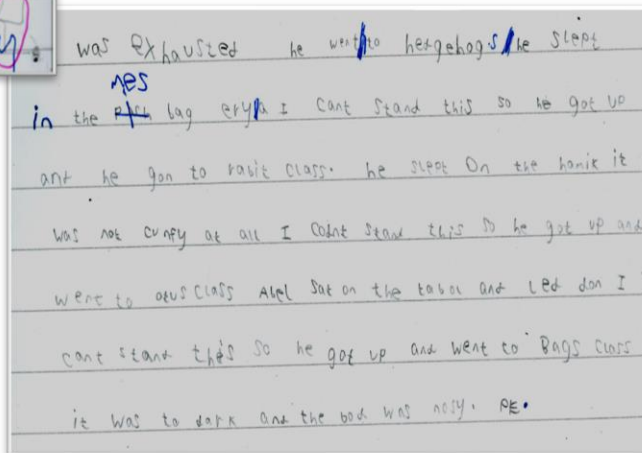 was exhausted he went to hergehogs he slept
mes
in the bag ery I cant stand this so he got up
ant he gon to rabit class. he slept On the hamik it
was not cumfy at all I coant stand this so he got up and
went to otus class Abel sat on the tabol and led don I
cant stand this so he got up and went to Bags class
it was to dark and the bod was nosy. PE.